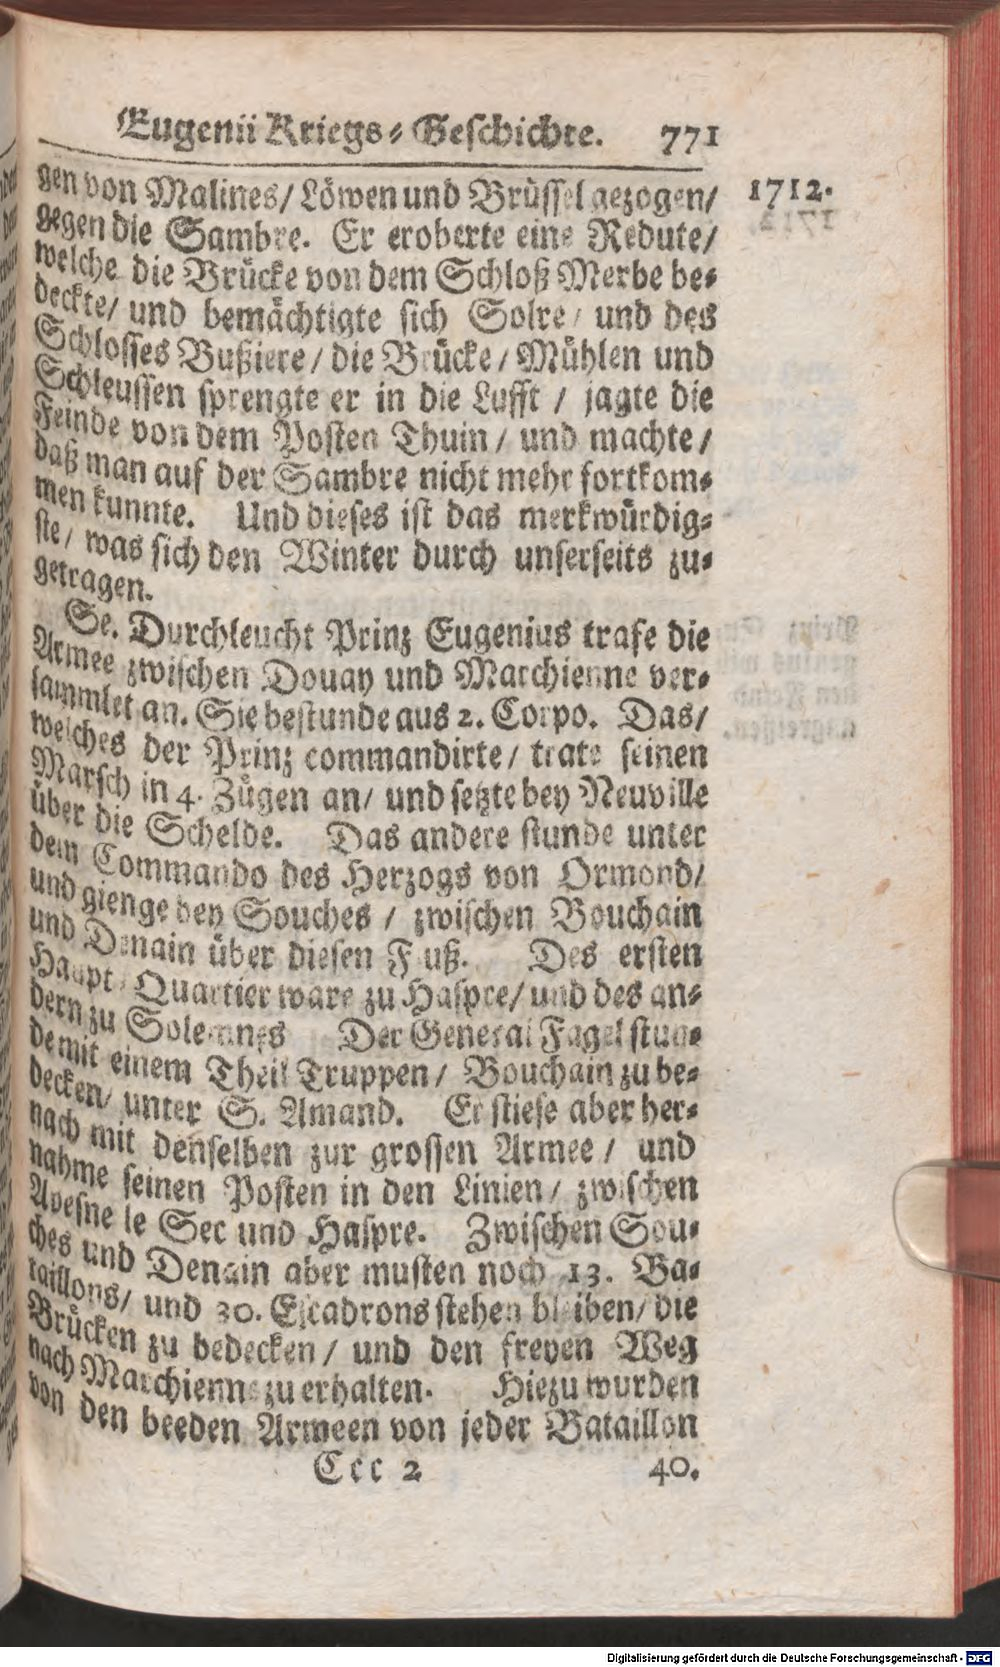 Eugenii Kriegs-Geschichte. 771
1712.
gen von Malines/ Löwen und Brüssel gezogen/
gegen die Sambre. Er eroberte eine Redute/
welche die Brücke von dem Schloß Merbe be-
deckte/ und bemächtigte sich Solre/ und des
Schlosses Bußiere/ die Brücke/ Mühlen und
Schleussen sprengte er in die Lufft/ jagte die
Feinde von dem Posten Thuin/ und machte/
daß man auf der Sambre nicht mehr fortkom-
men kunnte. Und dieses ist das merkwürdig-
ste/ was sich den Winter durch unserseits zu-
getragen.
Se. Durchleucht Prinz Eugenius trafe die
Armee zwischen Douay und Marchienne ver-
sammlet an. Sie bestunde aus 2. Corpo. Das/
welches der Prinz commandirte/ trate seinen
Marsch in 4. Zügen an/ und setzte bey Neuville
über die Schelde. Das andere stunde unter
dem Commando des Herzogs von Ormond/
und gienge bey Souches/ zwischen Bouchain
und Denain über diesen Fluß. Des ersten
Haupt-Quartier ware zu Haspre/ und des an-
dern zu Solemnes Der General Fagel stun-
de mit einem Theil Truppen/ Bouchain zu be-
decken/ unter S. Amand. Er stiese aber her-
nach mit denselben zur grossen Armee/ und
nahme seinen Posten in den Linien/ zwischen
Avesne le Sec und Haspre. Zwischen Sou-
ches und Denain aber musten noch 13. Ba-
taillons/ und 30. Escadrons stehen bleiben/ die
Brücken zu bedecken/ und den freyen Weg
nach Marchienne zu erhalten. Hiezu wurden
von den beeden Armeen von jeder Bataillon
Ccc 2 40.
Digitalisierung gefördert durch die Deutsche Forschungsgemeinschaft - DFG